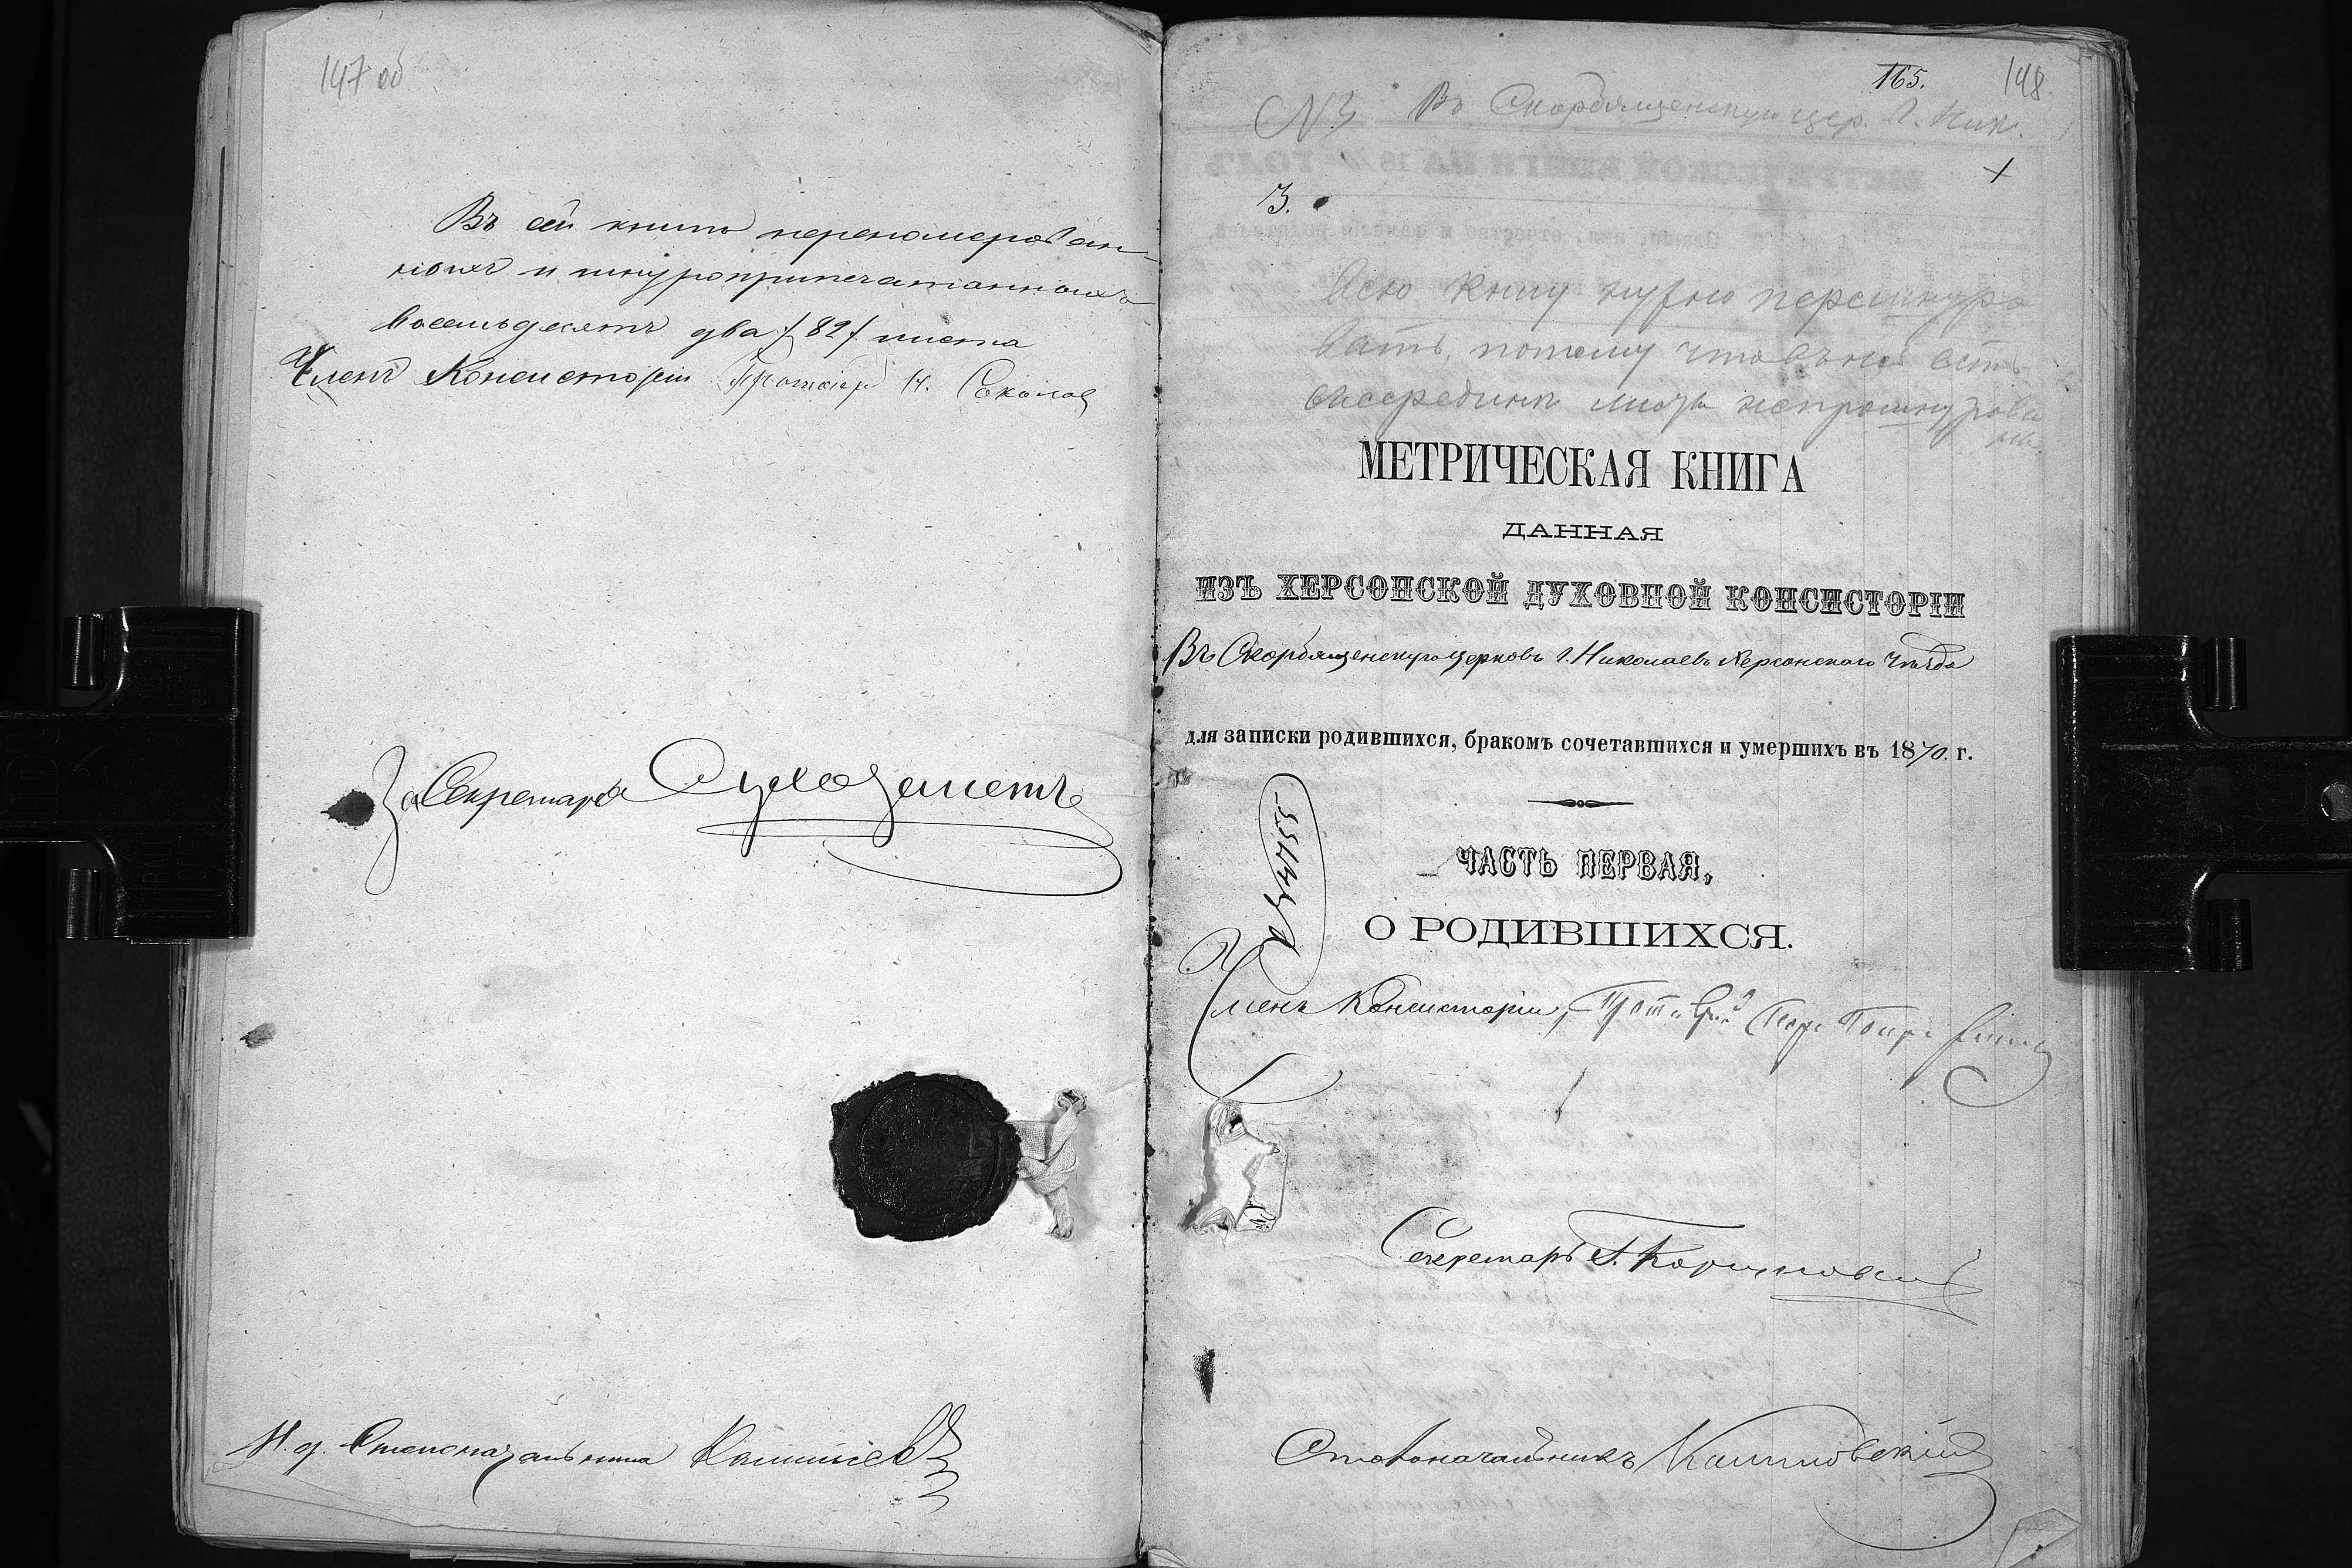 147 об
Въ сей книге перенумерован-
ныхъ и шнуроприпечатанныхъ
восемьдесятъ два /82/ листа
Членъ Консисторіи Протоіер. Н. Соколов
За Секретаря Сухозанетъ
И. д. Столоначальника
165.
148
№ 3 Въ Скорбященскую цер. г. Ник.
3.
Всю книгу нужно перешнуро
вать, потому что въ ней есть
в середине листы непрошнурова
ны
МЕТРИЧЕСКАЯ КНИГА
ДАННАЯ
ИЗЪ ХЕРСОНСКОЙ ДУХОВНОЙ КОНСИСТОРІИ
Въ Скорбященскую церковь г. Николаева Херсонскаго Уѣзда
для записки родившихся, бракомъ сочетавшихся и умершихъ въ 1870. г.
ЧАСТЬ ПЕРВАЯ,
О РОДИВШИХСЯ.
Членъ Консисторіи,
Секретарь
Столоначальникъ